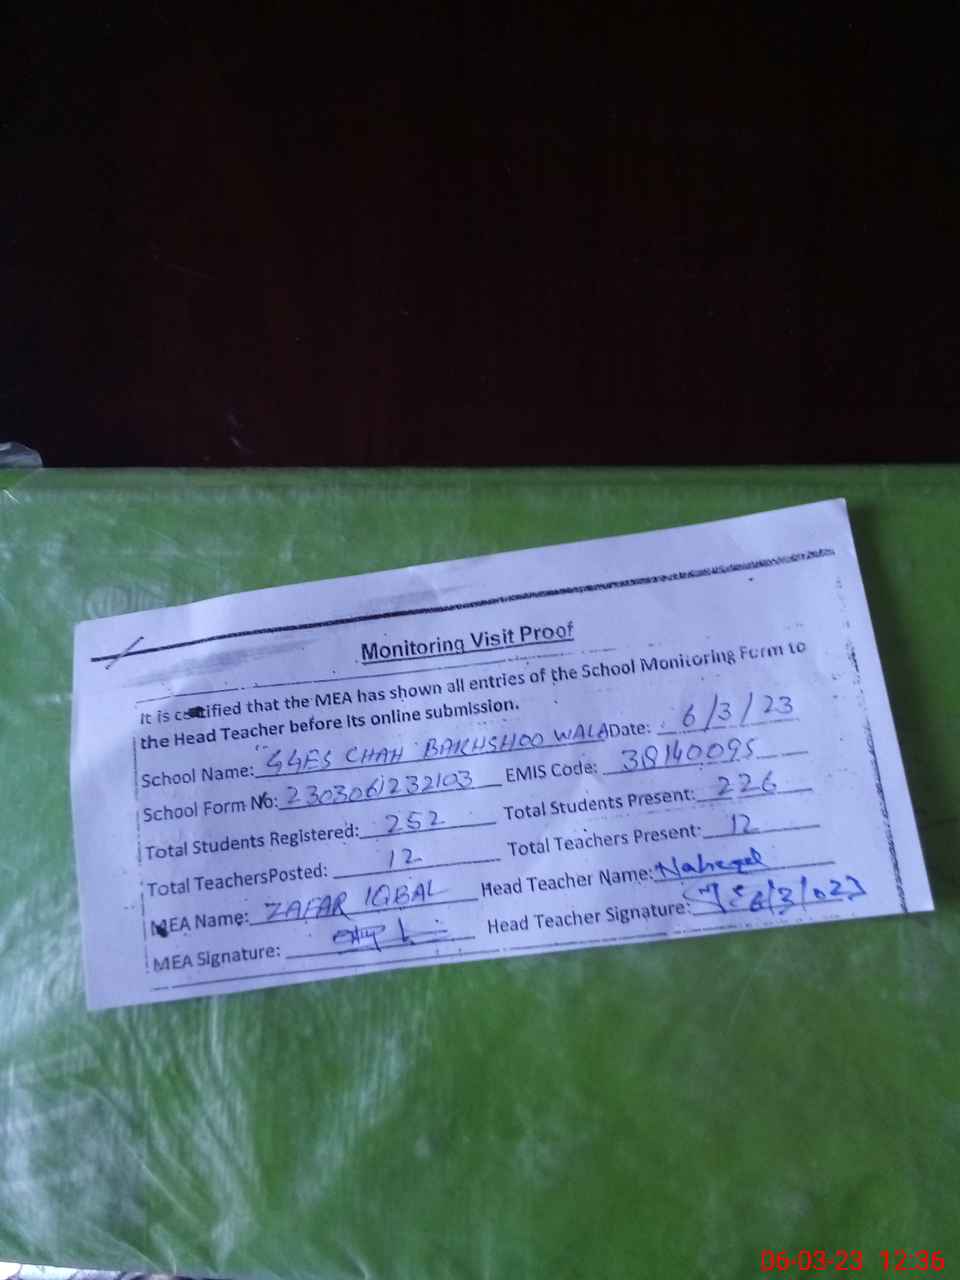 Monitoring Visit Proof
It is certified that the MEA has shown all entries of the School Monitoring Form to
the Head Teacher before its online submission.
School Name: GGES CHAH BAKHSHOO WALA Date: 6/3/23
School Form No: 2303061232103 EMIS Code: 38140095
Total Students Registered: 252 Total Students Present: 226
Total TeachersPosted: 12 Total Teachers Present: 12
MEA Name: ZAFAR IQBAL Head Teacher Name:
MEA Signature: Head Teacher Signature:
06-03-23 12:36